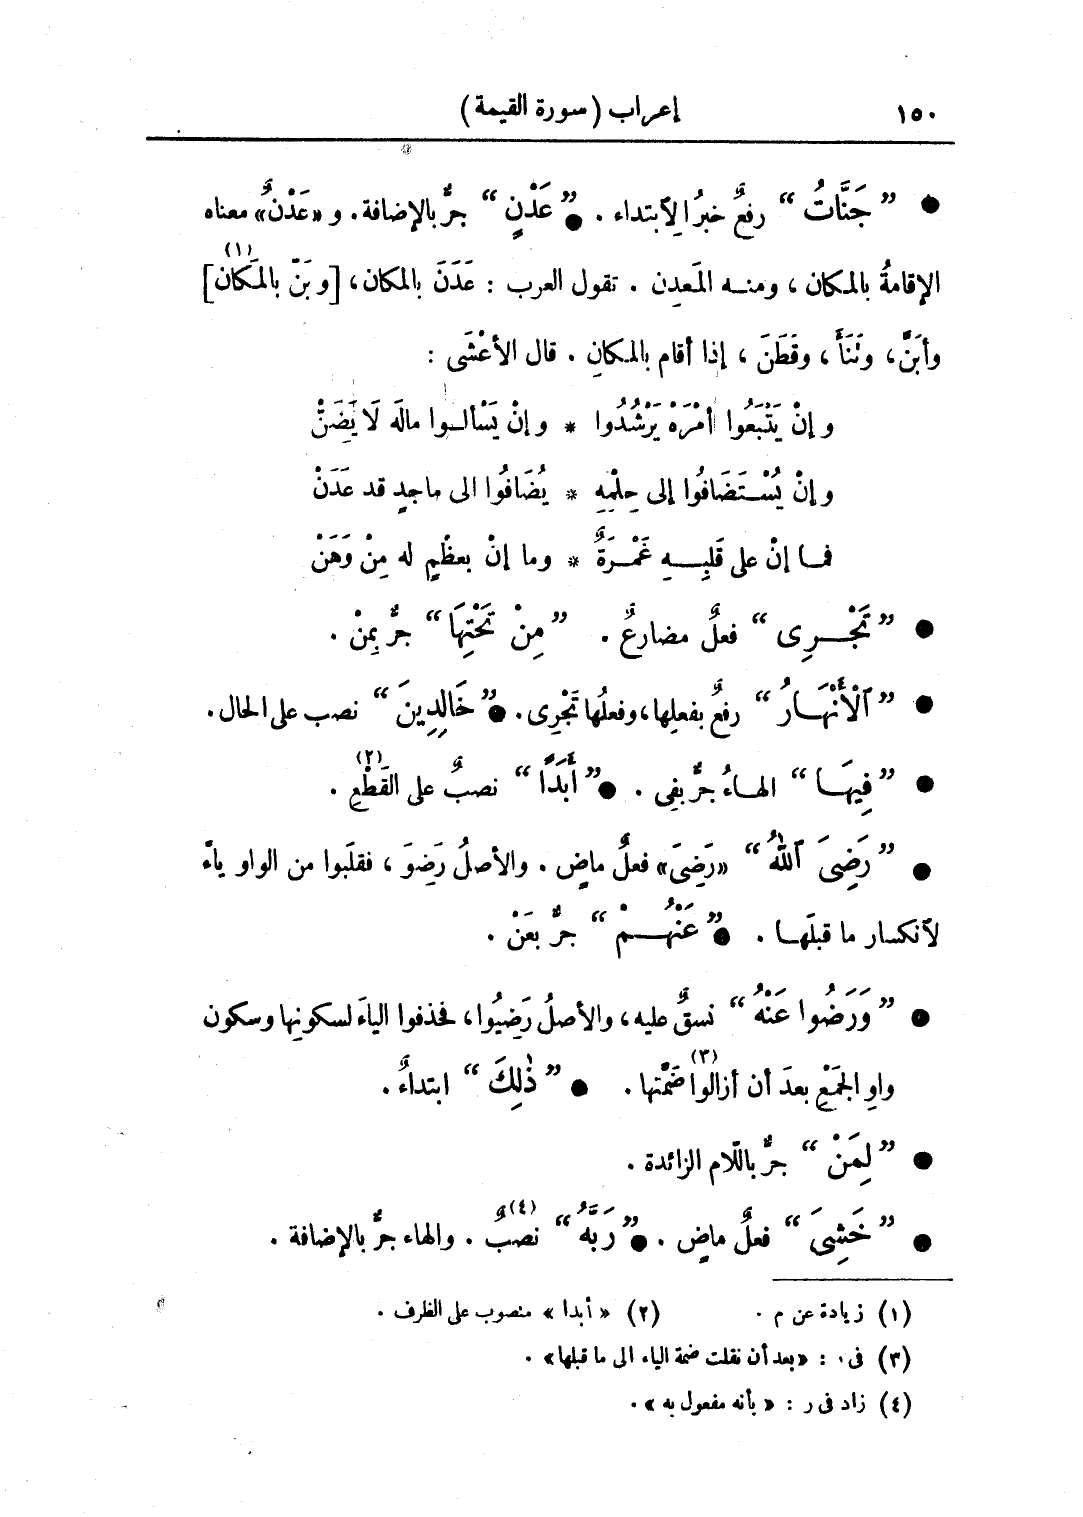 ١٥٠ إعراب (سورة القيمة)
● ” جَنَّاتُ “ رفعٌ خبرُ الِٱبتداء . ●” عَدْنٍ “ جرٌّ بالإضافة. و «عَدْنٌ» معناه
الإقامةُ بالمكان ، ومنه المَعدِن . تقول العرب : عَدَنَ بالمكان، [وبَنّ بالمَكان](١)
وأبَنَّ، وتَنَأَ ، وقَطَنَ ، إذا أقام بالمكانِ . قال الأعْشَى :
وإنْ يَتْبَعُوا أمْرَهْ يَرْشُدُوا * وإنْ يَسْألوا مالَه لَا يَضَنّْ
وإنْ يُسْتَضَافُوا إلى حِلْمِهِ * يُضَافُوا الى ماجدٍ قد عَدَنْ
فما إنْ على قَلبِهِ غَمْرَةٌ * وما إنْ بعظْمٍ له مِنْ وَهَنْ
● ” تَجْرِى “ فعلٌ مضارعٌ . ” مِنْ تَحْتِهَا “ جرٌّ بِمنْ .
● ” ٱلْأَنْهَارُ “ رفعٌ بفعلِها، وفعلُها تَجْرِى. ●” خَالِدِينَ “ نصب على الحال.
● ” فِيهَا “ الهاءُ جرٌّ بفِى . ●” أَبَدًا “ نصبٌ على القَطْعِ(٢) .
● ” رَضِىَ ٱللهُ “ «رَضِىَ» فعلٌ ماضٍ . والأصلُ رَضِوَ ، فقلَبوا من الواو ياءً
لٱنكسار ما قبلَها . ●” عَنْهُمْ “ جرٌّ بعَنْ .
● ” وَرَضُوا عَنْهُ “ نسقٌ عليه، والأصلُ رَضِيُوا، فحذفوا الياءَ لسكونِها وسكون
واوِ الجَمْعِ بعدَ أن أزالُوا ضَمَّتها(٣) . ● ” ذٰلِكَ “ ابتداءٌ .
● ” لِمَنْ “ جرٌّ باللّام الزائدة .
● ” خَشِىَ “ فعلٌ ماضٍ . ●” رَبَّهُ “ نصبٌ(٤) . والهاء جرٌّ بالإضافة .
(١) زيادة عن م . (٢) « أبدا » منصوب على الظرف .
(٣) فى م : «بعد أن نقلت ضمة الياء الى ما قبلها» .
(٤) زاد فى ر : « بأنه مفعول به » .